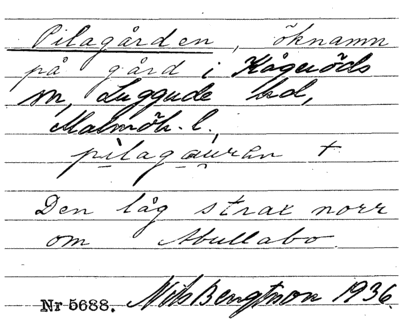 Pilagården, öknamn
på gård i Kågeröds
sn, Luggude hd,
Malmöh. l.
pilagauran +
Den låg strax norr
om Abullabo.
Nr 5688. Nils Bengtsson 1936.